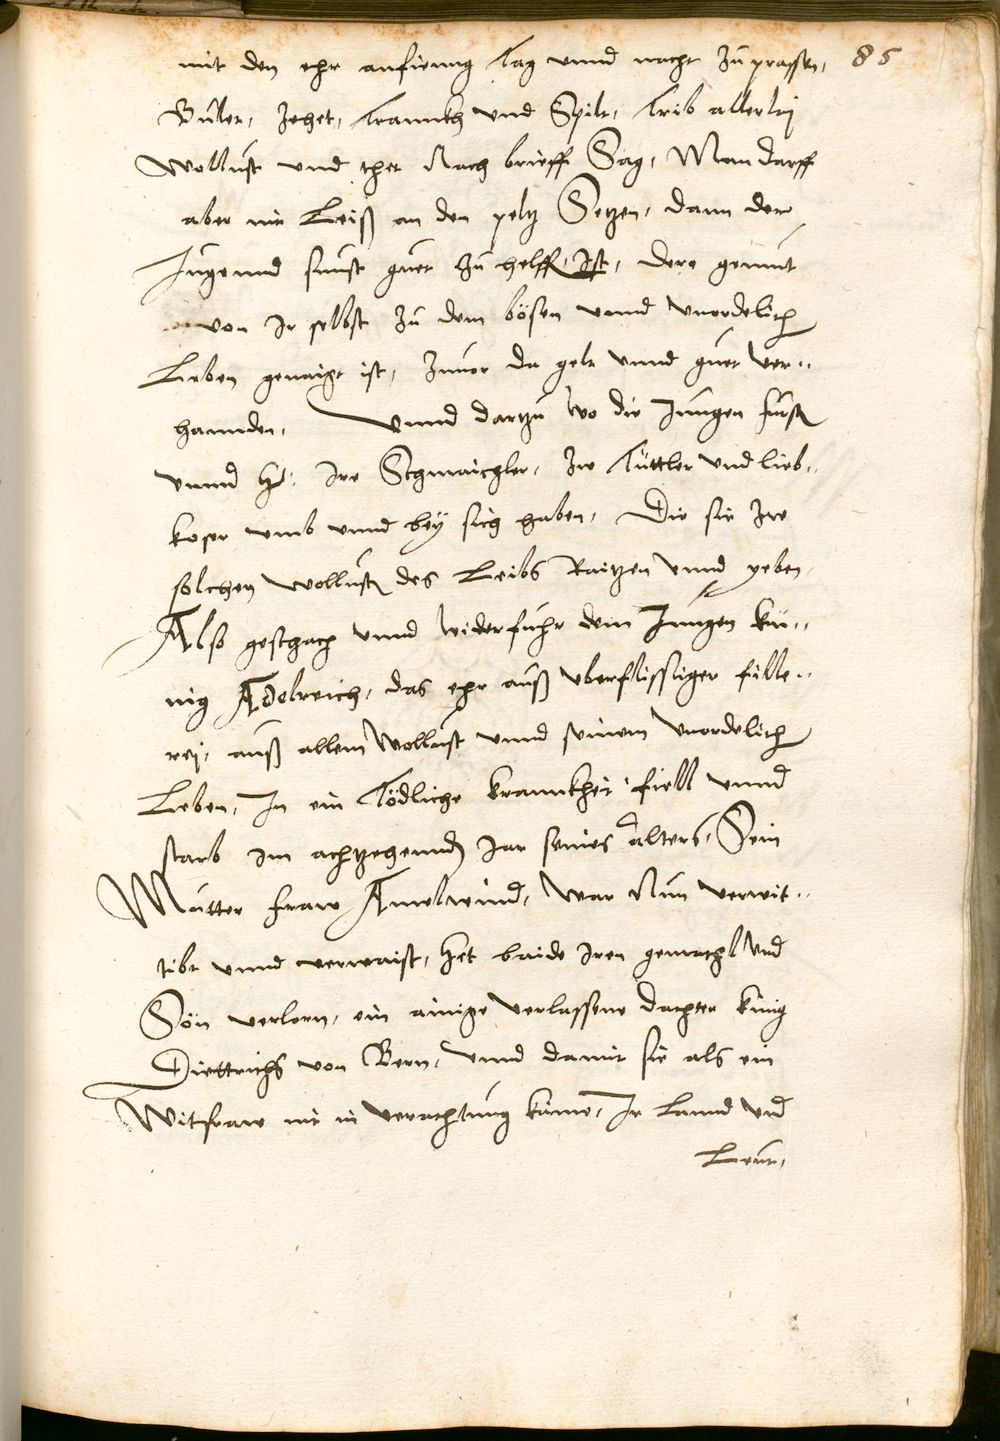 mit den ehr anfienng Tag unnd nacht zu prassen, 85
Buler, zehet, Trannkh und Spilt, Trib allerlej
Wollust und thet Nach brieff Sag, Man darff
aber nit Leiß an den peltz Setzen, dann der
Jugennd sunst guet zu helff ist, dere gemuet
von Ir selbst zu dem bösen unnd unordelich
Leben genaigt ist, zuvor da gelt unnd guet ver..
hannden, Unnd dartzu wo die Jungen fursten
unnd H: ire Schmaichler, ire Tuttler und lieb..
koser umb unnd bey sich haben, Die sie zw
solchen wollusten des Leibs Raitzen unnd yeben,
Also geschach unnd widerfuhr dem Jungen kü..
nig Adelreich, das ehr auß uberflissiger fülle..
rej, auß allem Wollust unnd seinem unordelich
Leben, In ein Tödliche krannkheit fiell unnd
starb im achtzehennd Jar seines alters, Sein
Mutter fraw Amelwind, War Nun verwit..
tibt unnd verwaist, Het baide Iren gemachl und
Sön verlorn, ein ainige verlassene dachter künig
Diettrichs von Bern, unnd damit sie als ein
Witfraw nit in verachtung käme, Ir Lannd und
Leut,